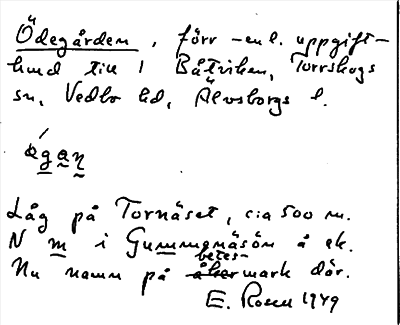 Ödegården, förr – enl. uppgift –
hmd till 1 Båtviken, Torrskogs
sn, Vedbo hd, Älvsborgs l.
Låg på Tornäset, c:a 500 m.
N m i Gummenäsön å ek.
betes-
Nu namn på åkermark där.
E. Rosell 1949